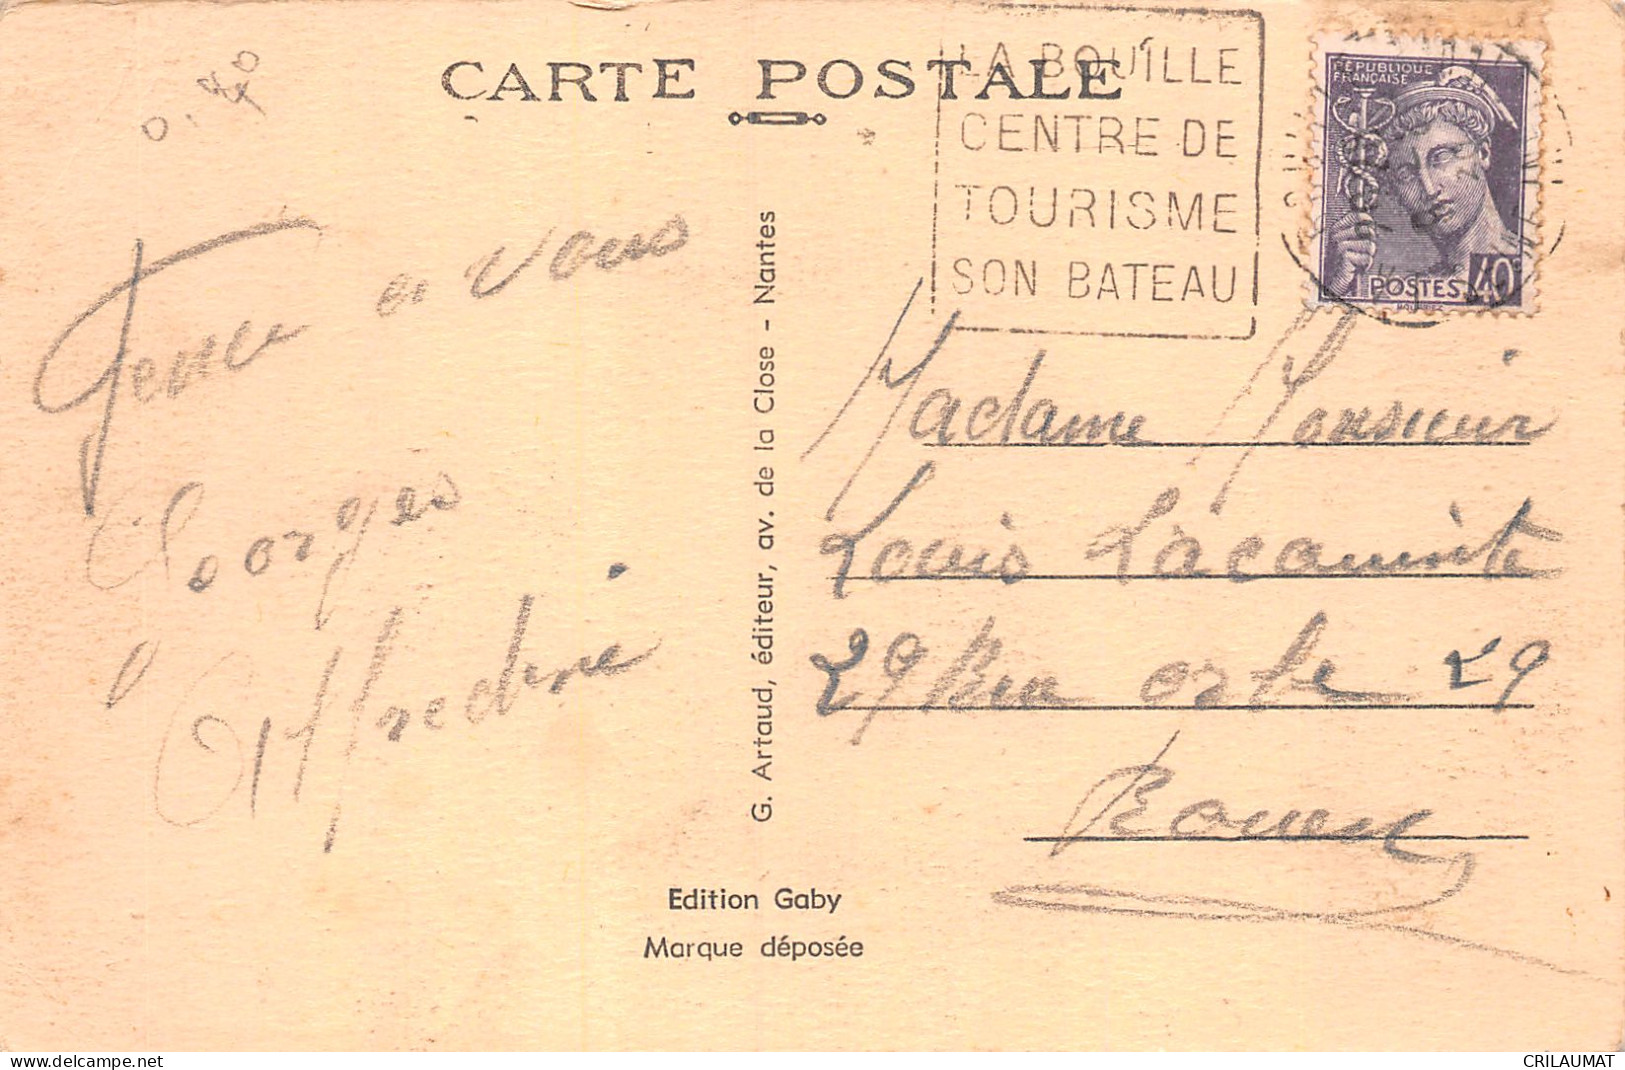 0,40
CARTE POSTALE
LA BOUILLE
CENTRE DE
TOURISME
SON BATEAU
RÉPUBLIQUE
FRANÇAISE
POSTES 40c
à vous
Georges
G. Artaud, éditeur, av. de la Close - Nantes
Madame Monsieur
Louis
29 Rue Orbe 29
Rouen
Edition Gaby
Marque déposée
www.delcampe.net
CRILAUMAT